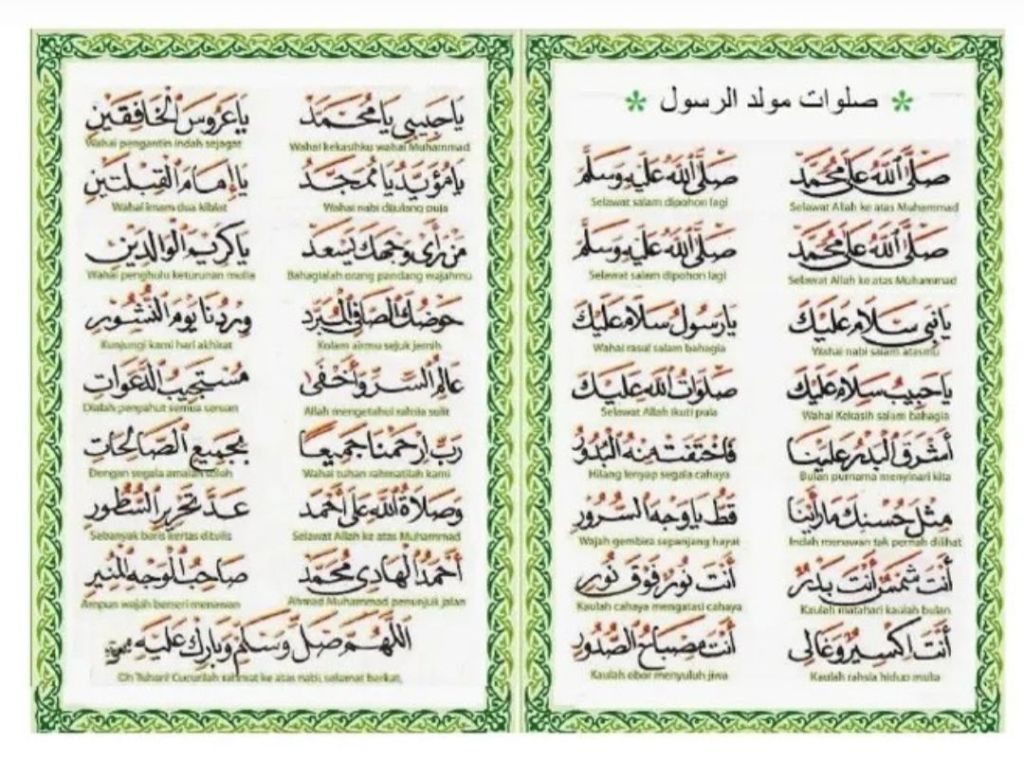 صلوات مولد الرسول
صَلَّى اللهُ عَلَى مُحَمَّدْ
Selawat Allah ke atas Muhammad
صَلَّى اللهُ عَلَيْهِ وَسَلَّمْ
Selawat salam dipohon lagi
صَلَّى اللهُ عَلَى مُحَمَّدْ
Selawat Allah ke atas Muhammad
صَلَّى اللهُ عَلَيْهِ وَسَلَّمْ
Selawat salam dipohon lagi
يَا نَبِي سَلَامْ عَلَيْكَ
Wahai nabi salam atasmu
يَا رَسُولْ سَلَامْ عَلَيْكَ
Wahai rasul salam bahagia
يَا حَبِيبْ سَلَامْ عَلَيْكَ
Wahai Kekasih salam bahagia
صَلَوَاتُ اللهْ عَلَيْكَ
Selawat Allah ikuti pula
أَشْرَقَ الْبَدْرُ عَلَيْنَا
Bulan purnama menyinari kita
فَاخْتَفَتْ مِنْهُ الْبُدُورُ
Hilang lenyap segala cahaya
مِثْلَ حُسْنِكْ مَا رَأَيْنَا
Indah menawan tak pernah dilihat
قَطُّ يَا وَجْهَ السُّرُورِ
Wajah gembira sepanjang hayat
أَنْتَ شَمْسٌ أَنْتَ بَدْرٌ
Kaulah matahari kaulah bulan
أَنْتَ نُورٌ فَوْقَ نُورٍ
Kaulah cahaya mengatasi cahaya
أَنْتَ إِكْسِيرٌ وَغَالِي
Kaulah rahsia hidup mulia
أَنْتَ مِصْبَاحُ الصُّدُورِ
Kaulah obor menyuluh jiwa
يَا حَبِيبِي يَا مُحَمَّدْ
Wahai kekasihku wahai Muhammad
يَا عَرُوسَ الْخَافِقَيْنِ
Wahai pengantin indah sejagat
يَا مُؤَيَّدْ يَا مُمَجَّدْ
Wahai nabi dijulang puja
يَا إِمَامَ الْقِبْلَتَيْنِ
Wahai imam dua kiblat
مَنْ رَأَى وَجْهَكَ يَسْعَدْ
Bahagialah orang pandang wajahmu
يَا كَرِيمَ الْوَالِدَيْنِ
Wahai penghulu keturunan mulia
حَوْضُكَ الصَّافِي الْمُبَرَّدْ
Kolam airmu sejuk jernih
وِرْدُنَا يَوْمَ النُّشُورِ
Kunjungi kami hari akhirat
عَالِمُ السِّرِّ وَأَخْفَى
Allah mengetahui rahsia sulit
مُسْتَجِيبُ الدَّعَوَاتِ
Dialah penyahut semua seruan
رَبِّ ارْحَمْنَا جَمِيعًا
Wahai tuhan rahmatilah kami
بِجَمِيعِ الصَّالِحَاتِ
Dengan segala amalan soleh
وَصَلَاةُ اللهِ عَلَى أَحْمَدْ
Selawat Allah ke atas Muhammad
عَدَّ تَحْرِيرِ السُّطُورِ
Sebanyak baris kertas ditulis
أَحْمَدُ الْهَادِي مُحَمَّدْ
Ahmad Muhammad penunjuk jalan
صَاحِبُ الْوَجْهِ الْمُنِيرِ
Ampun wajah berseri menawan
اَللَّهُمَّ صَلِّ وَسَلِّمْ وَبَارِكْ عَلَيْهِ
Oh Tuhan! Cucurilah rahmat ke atas nabi, selamat berkat.